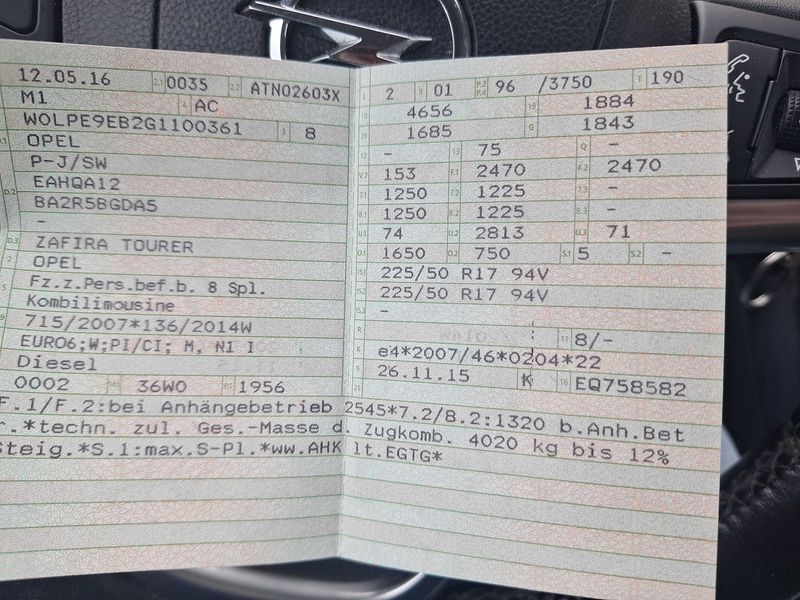 12.05.16 2.1 0035 2.2 ATN02603X
M1 4 AC
WOLPE9EB2G1100361 3 8
OPEL
P-J/SW
EAHQA12
D.2 BA2R5BGDA5
-
D.3 ZAFIRA TOURER
2 OPEL
5 Fz.z.Pers.bef.b. 8 Spl.
Kombilimousine
715/2007*136/2014W
EURO6;W;PI/CI; M, N1 I
Diesel
0002 14.1 36W0 P.1 1956
L 2 9 01 P.2 P.4 96 /3750 T 190
18 4656 19 1884
20 1685 G 1843
- 13 75 Q -
V.7 153 F.1 2470 F.2 2470
7.1 1250 7.2 1225 7.3 -
8.1 1250 8.2 1225 8.3 -
U.1 74 U.2 2813 U.3 71
O.1 1650 O.2 750 S.1 5 S.2 -
15.1 225/50 R17 94V
15.2 225/50 R17 94V
15.3 -
R 11 8/-
K e4*2007/46*0204*22
6 26.11.15 K 16 EQ758582
21
F.1/F.2:bei Anhängebetrieb 2545*7.2/8.2:1320 b.Anh.Bet
r.*techn. zul. Ges.-Masse d. Zugkomb. 4020 kg bis 12%
Steig.*S.1:max.S-Pl.*ww.AHK lt.EGTG*